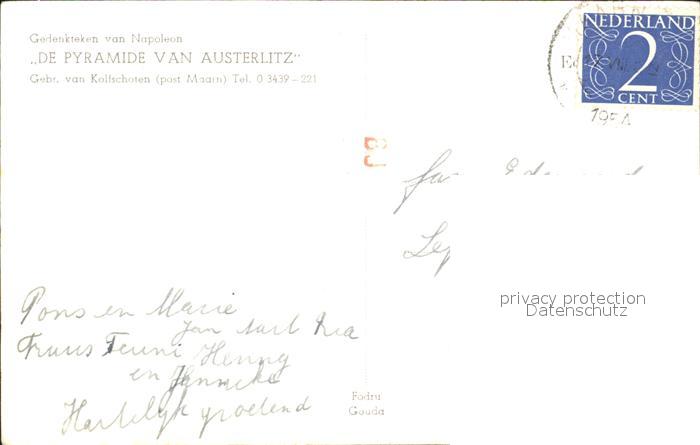 Gedenkteken van Napoleon
„DE PYRAMIDE VAN AUSTERLITZ"
Gebr. van Kolfschoten (post Maarn) Tel. 0 3439 – 221
NEDERLAND
2
CENT
1954
privacy protection
Datenschutz
Pons en Marie
Jan Aart Ria
Truus Teuni Henny
en Janneke
Hartelijk groetend
Fodru
Gouda